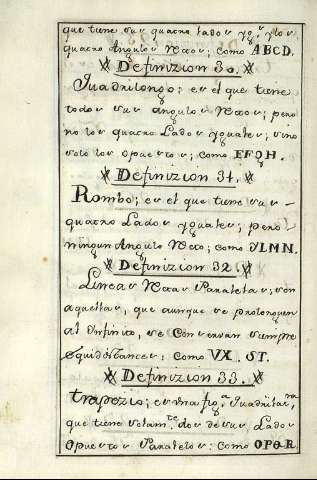 que tiene sus quatro lados yg.s y los
quatro Angulos Rectos; como ABCD.
Definizion 30.
Quadrilongo; es el que tiene
todos sus angulos Rectos; pero
no los quatro Lados yguales; sino
solo los opuestos; como EFGH.
Definizion 31.
Rombo; es el que tiene sus
quatro Lados yguales; pero
ningun Angulo Recto; como YLMN.
Definizion 32.
Lineas Rectas Paralelas; son
aquellas, que aunque se prolonguen
al Infinito, se Conservan siempre
equidistantes: como VX, ST.
Definizion 33.
Trapezio; es una fig.a Quadrilat.a
que tiene solam.te dos de sus Lados
Opuestos Paralelos: como OPQR.